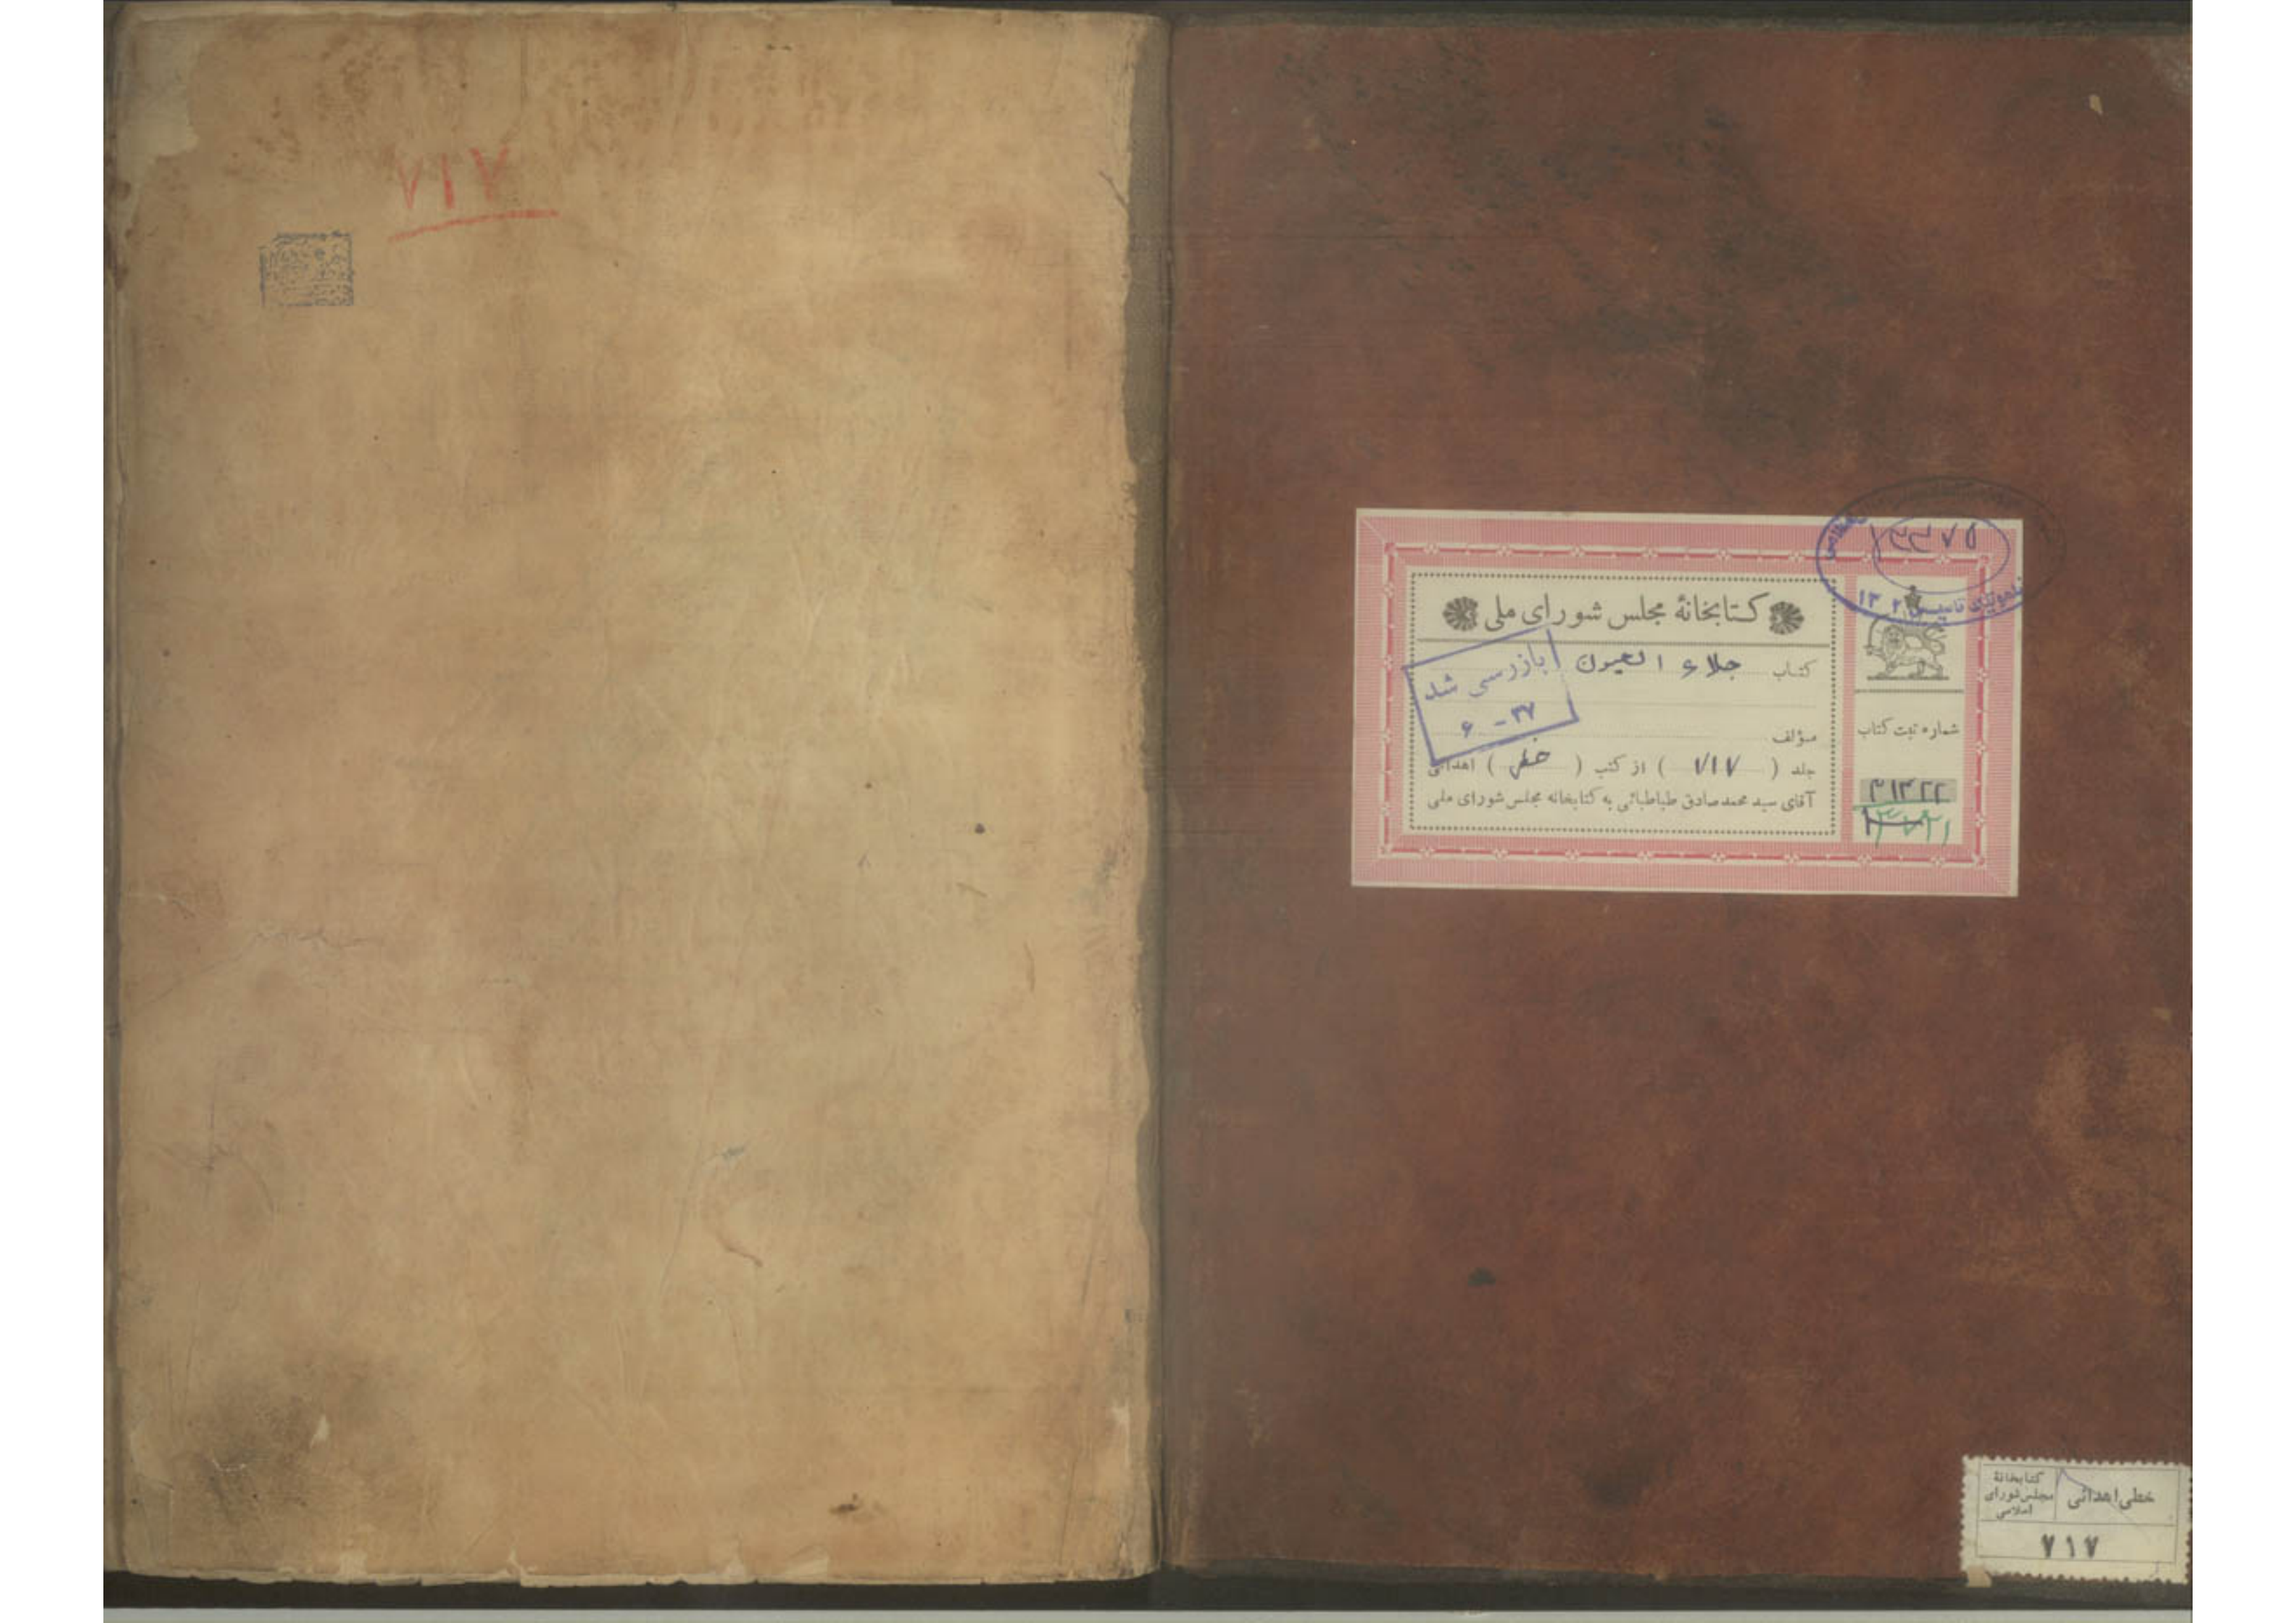 ۷۱۷
۱۳۴۷۵
کتابخانهٔ مجلس شورای ملی
کتاب جلاء العیون
بازرسی شد
۳۷ - ۶
مؤلف
جلد ( ۷۱۷ ) از کتب ( خطی ) اهدائی
آقای سید محمد صادق طباطبائی به کتابخانه مجلس شورای ملی
شماره ثبت کتاب
خطی اهدائی
کتابخانهٔ
مجلس شورای
اسلامی
۷۱۷